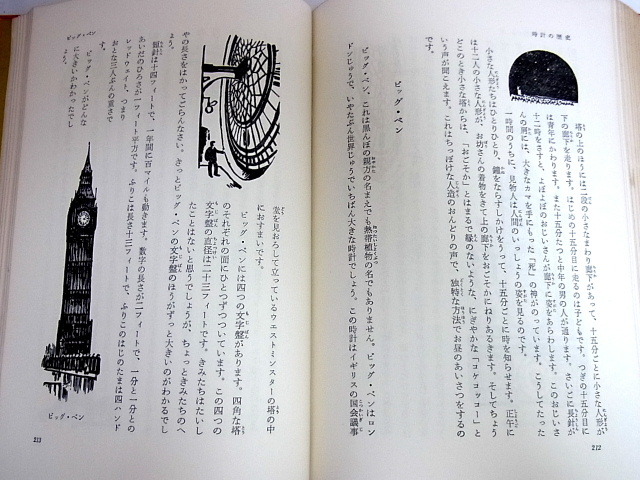 時計の歴史
塔の上のほうには二段の小さなまわり廊下があって、十五分ごとに小さな人形が
下の廊下を走ります。はじめの十五分目に走るのは子どもです。つぎの十五分目に
は青年にかわります。また十五分たつと中年の男の人が通ります。さいごに長針が
十二時をさすと、よぼよぼのおじいさんが廊下に姿をあらわします。このおじいさ
んの前には、大きなカマを手にもった「死」の神がのっています。こうしてたった
一時間のうちに、見物人は人間のいっしょうの姿を見るのです。
小さな人形たちはひとりひとり、鐘をならすしかけをうって、十五分ごとに時を知らせます。正午に
は十二人の小さな人形が、お坊さんの着物をきて上の廊下をおごそかにねりあるきます。そしてちょう
どこのとき小さな塔からは、「おごそか」とはまるで縁のないような、にぎやかな「コケコッコー」と
いう声が聞こえます。これはちっぽけな人造のおんどりの声で、独特な方法でお昼のあいさつをするの
です。
ビッグ・ベン
ビッグ・ベン、これは黒んぼの親方の名まえでも熱帯植物の名でもありません。ビッグ・ベンはロン
ドンじゅうで、いやたぶん世界じゅうでいちばん大きな時計でしょう。この時計はイギリスの国会議事
212
ビッグ・ベン
堂を見おろして立っているウエストミンスターの塔の中
におすまいです。
ビッグ・ベンには四つの文字盤があります。四角な塔
のそれぞれの面にひとつずつついています。この四つの
文字盤の直径は二十三フィートです。きみたちはたいし
たことはないと思うでしょうが、ちょっときみたちのへ
やの長さをはかってごらんなさい。きっとビッグ・ベンの文字盤のほうがずっと大きいのがわかるでし
ょう。
短針は十四フィートで、一年間に百マイルも動きます。数字の長さが二フィートで、一分と一分との
あいだのひろさが一フィート平方です。ふりこは長さ十三フィートで、ふりこのはじのたまは四ハンド
レッドウェイト、つまり
おとな三人ぶんの重さで
す。
ビッグ・ベンがどんな
に大きいかわかったでし
ょう。
ビッグ・ベン
213